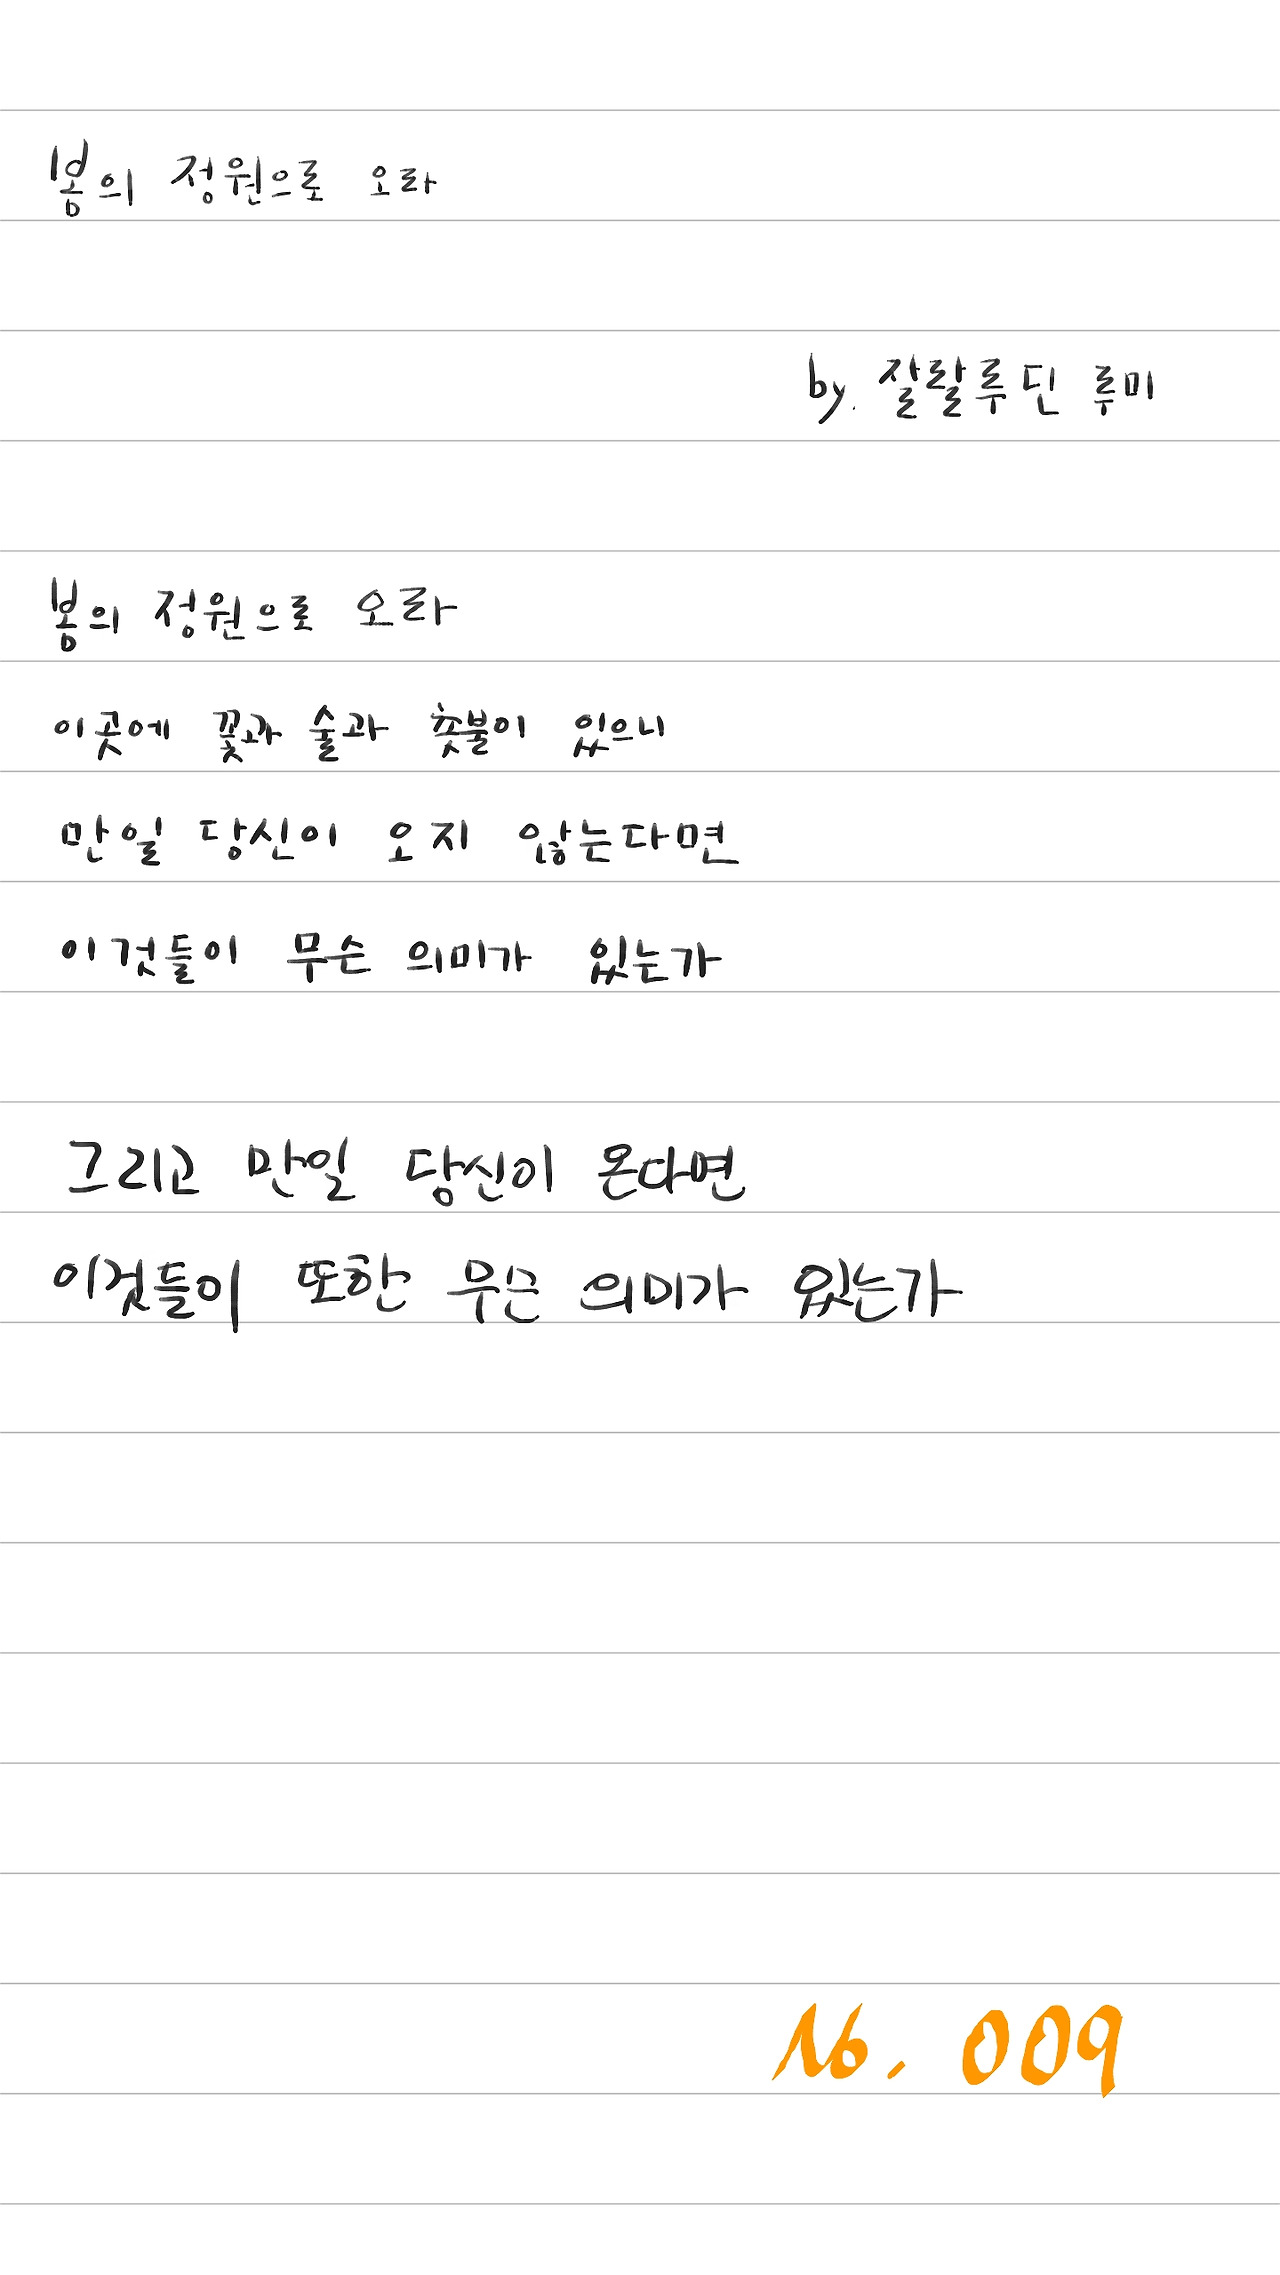 봄의 정원으로 오라
by. 잘랄루딘 루미
봄의 정원으로 오라
이곳에 꽃과 술과 촛불이 있으니
만일 당신이 오지 않는다면
이것들이 무슨 의미가 있는가
그리고 만일 당신이 온다면
이것들이 또한 무슨 의미가 있는가
No. 009